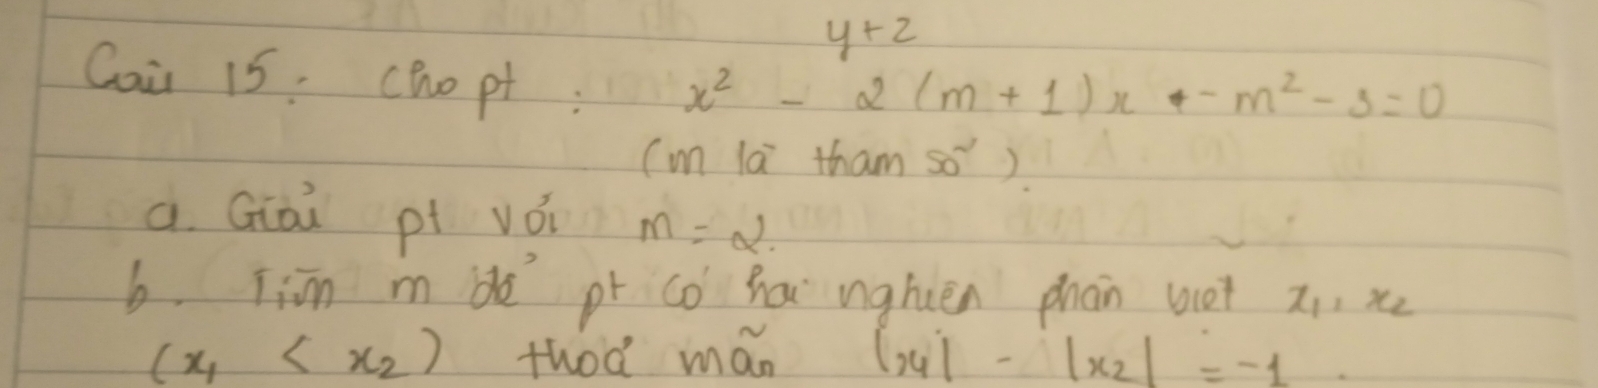 y+2
Câu 15: Cho pt : x² - 2(m+1)x - m² - 3 = 0
(m là tham số).
a. Giải pt với m = 2.
b. Tìm m để pt có hai nghiên phân biệt x₁, x₂
(x₁ < x₂) thoả mãn |x₁| - |x₂| = -1.